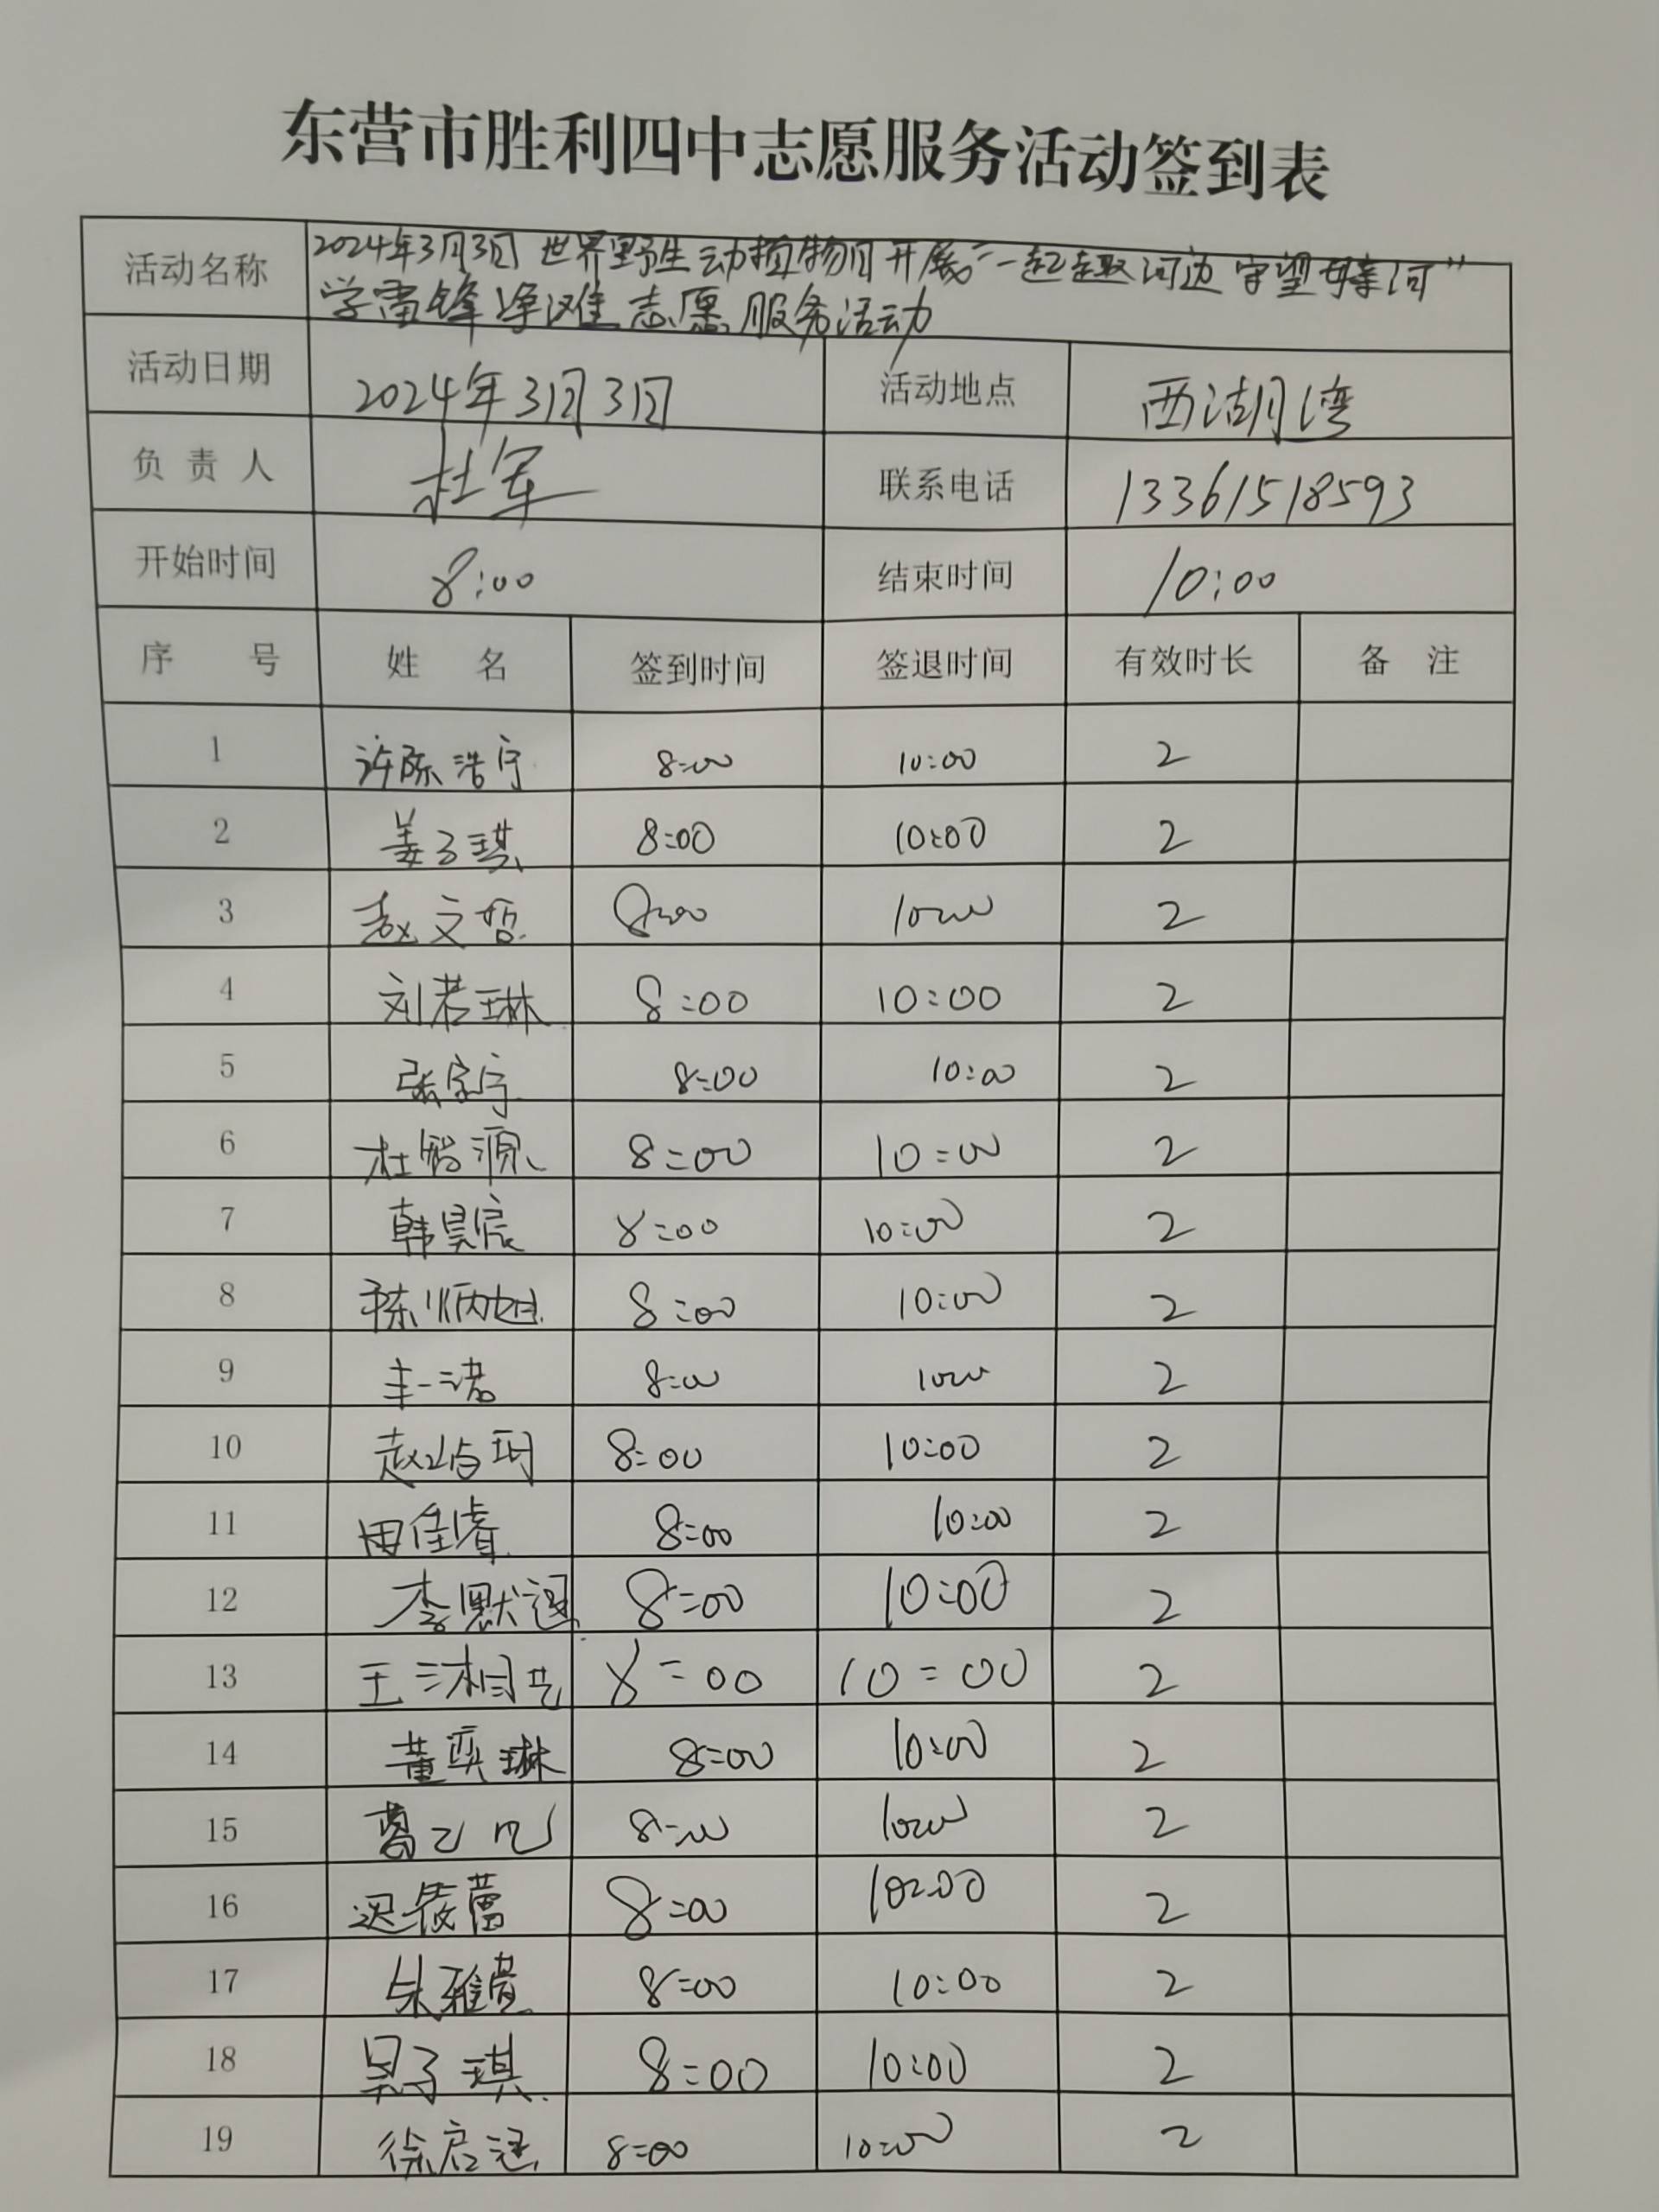 东营市胜利四中志愿服务活动签到表
活动名称 2024年3月3日 世界野生动植物日开展“一起趣河边 守望母亲河”
学雷锋净滩志愿服务活动
活动日期 2024年3月3日 活动地点 西湖月湾
负责人 杜军 联系电话 13361518593
开始时间 8:00 结束时间 10:00
序号 姓名 签到时间 签退时间 有效时长 备注
1 许陈浩宇 8:00 10:00 2
2 姜子琪 8:00 10:00 2
3 赵文哲 8:00 10:00 2
4 刘若琳 8:00 10:00 2
5 张家宁 8:00 10:00 2
6 杜 源 8:00 10:00 2
7 韩昊宸 8:00 10:00 2
8 陈炳旭 8:00 10:00 2
9 丰一诺 8:00 10:00 2
10 赵 玥 8:00 10:00 2
11 田佳睿 8:00 10:00 2
12 李默涵 8:00 10:00 2
13 王湘 8:00 10:00 2
14 董奕琳 8:00 10:00 2
15 葛乙凡 8:00 10:00 2
16 迟筱蕾 8:00 10:00 2
17 朱雅萱 8:00 10:00 2
18 吴子琪 8:00 10:00 2
19 徐启涵 8:00 10:00 2